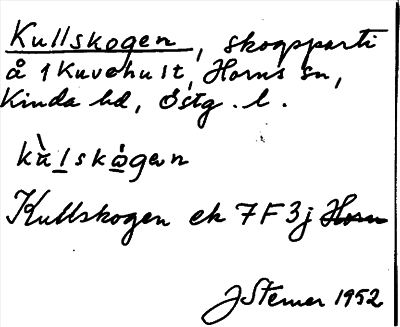 Kullskogen, skogsparti
å 1 Kuvehult, Horns sn,
Kinda hd, Östg. l.
kàlskȯgan
Kullskogen ek 7F3j Horn
JStemer 1952